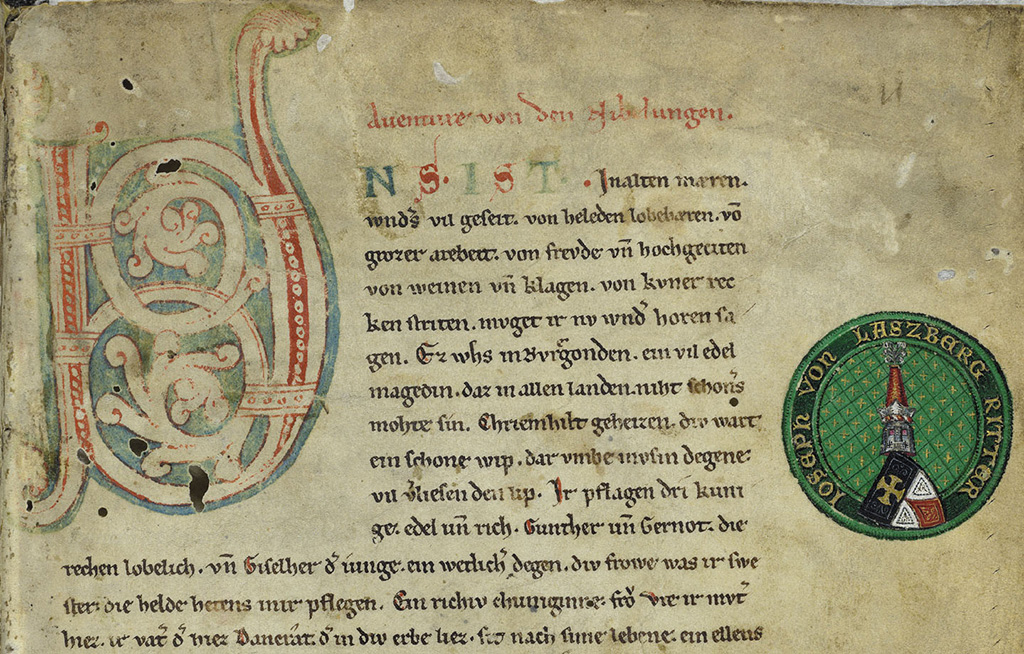 Auenture von den Nibelungen.
VNS. IST. In alten mæren.
wnds vil geseit. von heleden lobebæren. võ
grozer arebeit. von frevde vñ hochgeciten
von weinen vñ klagen. von kvner rec
ken striten. mvget ir nv wnd horen sa
gen. Ez whs in Bvrgonden. ein vil edel
magedin. daz in allen landen. niht schoners
mohte sin. Chriemhilt geheizen. div wart
ein schone wip. dar vmbe mvsin degene
vil vliesen den lip. Ir pflagen dri kuni
ge. edel vñ rich. Gunther vñ Gernot. die
rechen lobelich. vñ Giselher d iunge. ein wetlich degen. div frowe was ir swe
ster. die helde hetens inir pflegen. Ein richiv chuniginne. fro Vte ir mvt
hiez. ir vat d hiez Dancrat. d in div erbe liez. sit nach sime lebene. ein ellens
IOSEPH VON LASZBERG RITTER